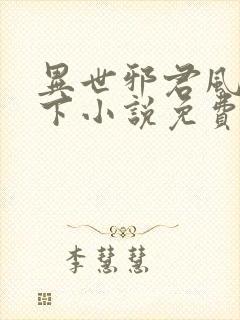 異世邪君風
下小說免費
李慧慧